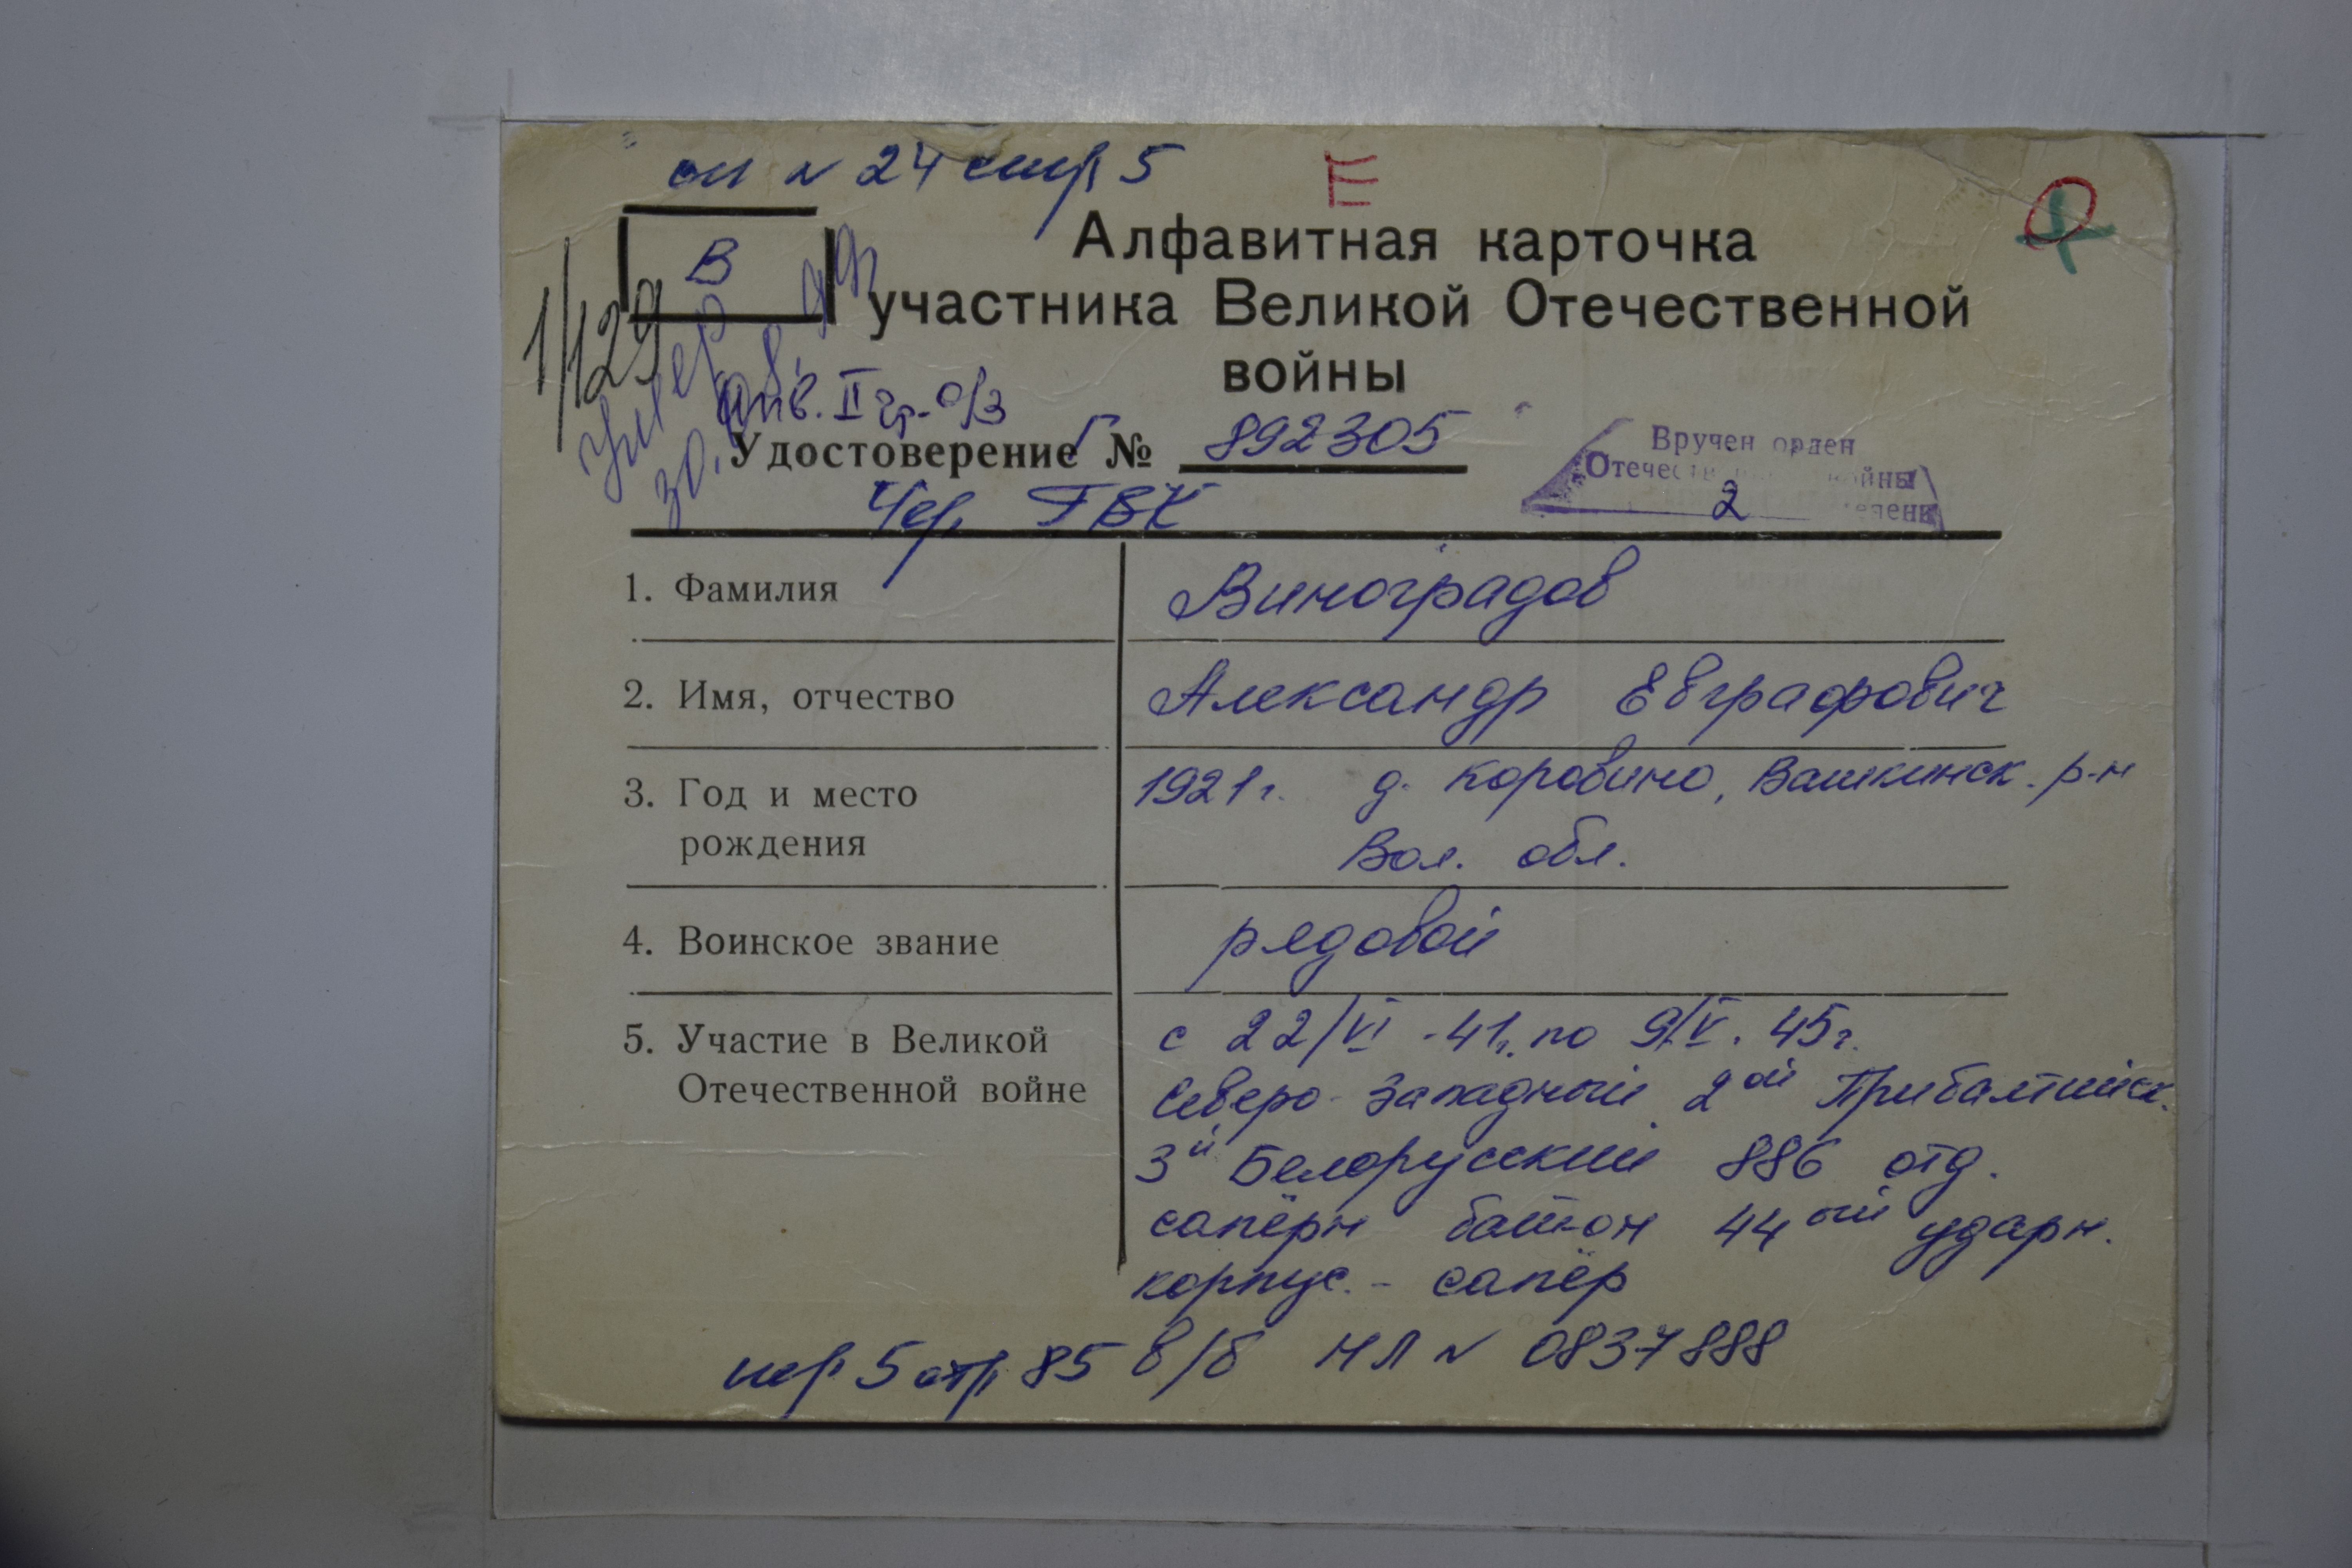 оп N 24 стр 5
Е
В
Алфавитная карточка
участника Великой Отечественной
войны
1/129
умер
инв. II гр. о/з
Удостоверение Г № 892305
Чер. ГВК
Вручен орден
Отечеств войны
2 степени
1. Фамилия Виноградов
2. Имя, отчество Александр Евграфович
3. Год и место 1921 г. д. Коровино, Вашкинск. р-н
рождения Вол. обл.
4. Воинское звание рядовой
5. Участие в Великой с 22/VI - 41 г. по 9/V. 45 г.
Отечественной войне Северо-Западный 2ой Прибалтийск.
3й Белорусский 886 отд.
сапёрн бат-он 44ый ударн.
корпус. - сапёр
5 стр. 85 в/б НЛ N 0837888